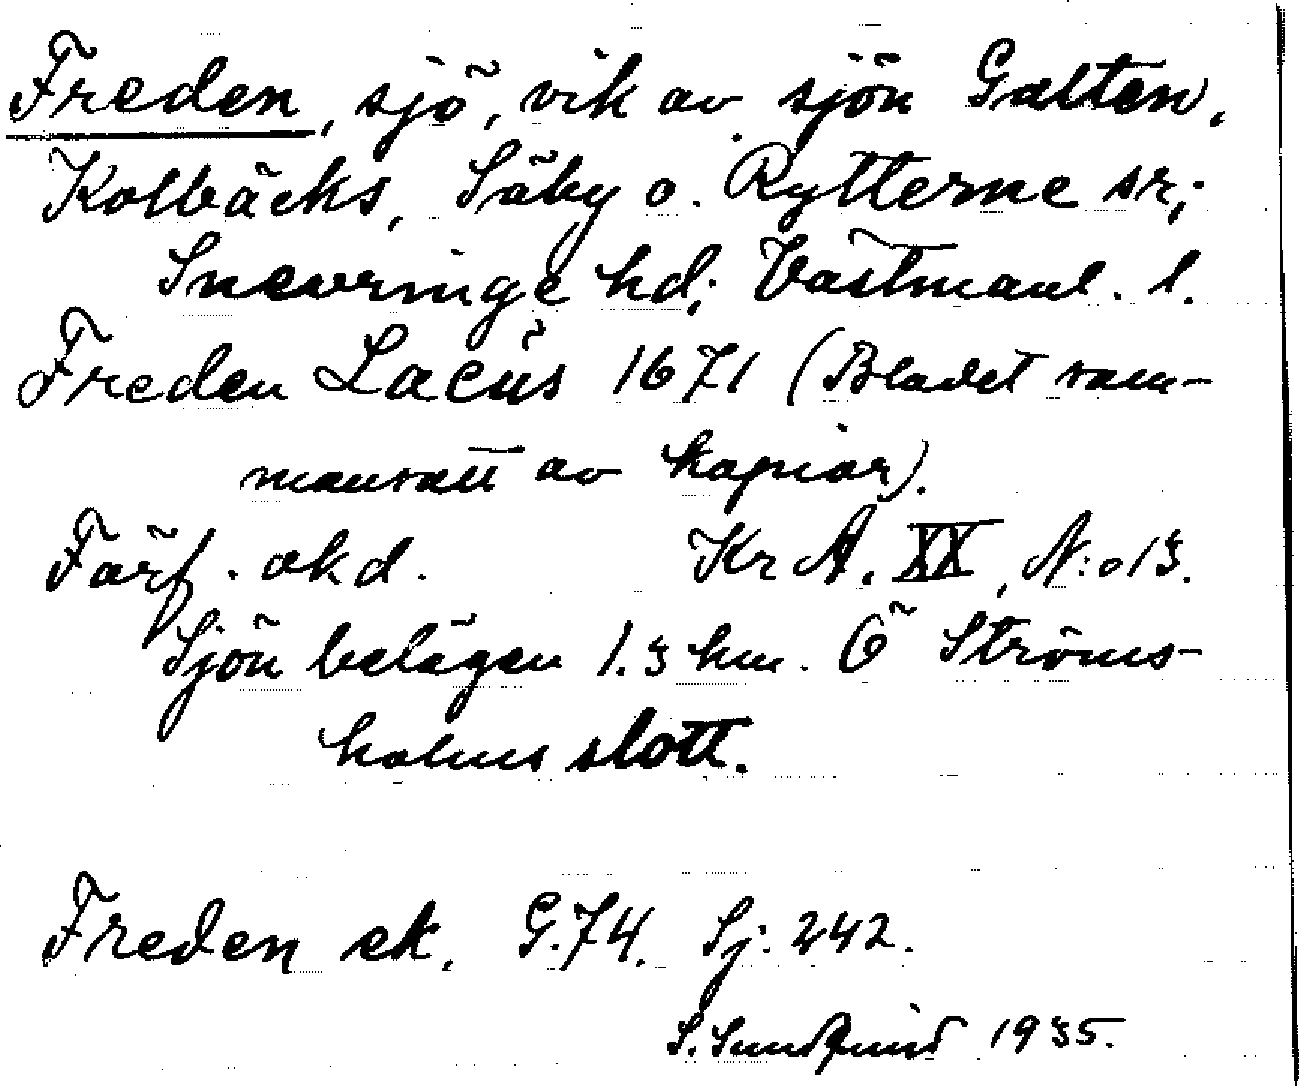 Freden, sjö, vik av sjön Galten,
Kolbäcks, Säby o. Rytterne sr;
Snevringe hd; Västmanl. l.
Freden Lacus 1671 (Bladet sam-
mansatt av kopior).
Förf. okd. Kr A. XX, N:o 13.
Sjön belägen 1.3 km. Ö Ströms-
holms slott.
Freden ek. G.74. Sj: 242.
S. Sundquist 1935.